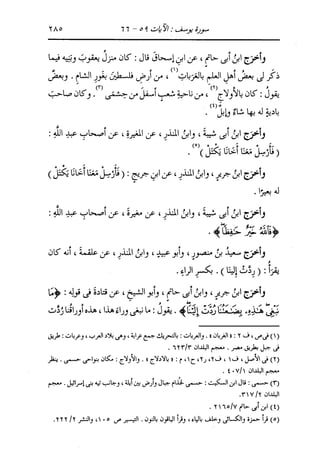 سورة يوسف : الآيات ٥٩ - ٦٦
٢٨٥
وأخرج ابنُ أبى حاتمٍ ، عن ابنِ إسحاقَ قال : كان منزلُ يعقوبَ وبَنِيه فيما
ذكَر لى بعضُ أهلِ العلمِ بالعَرَباتِ (١) ، من أرضِ فلسطينَ بغَورِ الشامِ . وبعضٌ
يقولُ : كان بالأولاجِ (٢) ، من ناحيةِ شِعْبٍ أسفلَ من حِسْمَى (٣) ، وكان صاحبَ
باديةٍ له بها شاءٌ وإبلٌ (٤) .
وأخرج ابنُ أبى شيبةَ ، وابنُ المنذرِ ، عن المغيرةِ ، عن أصحابِ عبدِ اللَّهِ :
( فَأَرْسِلْ مَعَنَا أَخَانَا يَكْتَلْ ) (٥) .
وأخرج ابنُ جريرٍ ، وابنُ المنذرِ ، عن ابنِ جريجٍ : ( فَأَرْسِلْ مَعَنَا أَخَانَا يَكْتَلْ )
له بعيرًا .
وأخرج ابنُ أبى شيبةَ ، وابنُ المنذرِ ، عن مغيرةَ ، عن أصحابِ عبدِ اللَّهِ :
﴿ فَاللَّهُ خَيْرٌ حَافِظًا ﴾ .
وأخرج سعيدُ بنُ منصورٍ ، وأبو عبيدٍ ، وابنُ المنذرِ ، عن علقمةَ ، أنه كان
يقرأُ : ( رِدَّتْ إِلَيْنَا ) . بكسرِ الراءِ .
وأخرج ابنُ جريرٍ ، وابنُ أبى حاتمٍ ، وأبو الشيخِ ، عن قتادةَ فى قولِه : ﴿ مَا
نَبْغِى هَٰذِهِ بِضَاعَتُنَا رُدَّتْ إِلَيْنَا ﴾ . يقولُ : ما نبغى وراءَ هذا ، هذه أوراقُنا رُدَّت
(١) فى ص ، ف ٢ : « الغربان » . والعربات : بالتحريك جمع عربة ، وهى بلاد العرب ، وعربات : طريق
فى جبل بطريق مصر . معجم البلدان ٦٢٣/٣ .
(٢) فى الأصل ، ف ١ ، ف ٢ ، ر ٢ ، ح ١ ، م : « بالأدلاج » . والأولاج : مكان بنواحى حسمى . ينظر
معجم البلدان ٤٠٧/١ .
(٣) حسمى : قال ابن السكيت : حسمى لجذام جبال وأرض بين أيلة ، وجانب تيه بنى إسرائيل . معجم
البلدان ٣١٧/٢ .
(٤) ابن أبى حاتم ٢١٦٥/٧ .
(٥) قرأ حمزة والكسائى وخلف بالياء ، وقرأ الباقون بالنون . التيسير ص ١٠٥ ، والنشر ٢٢٢/٢ .